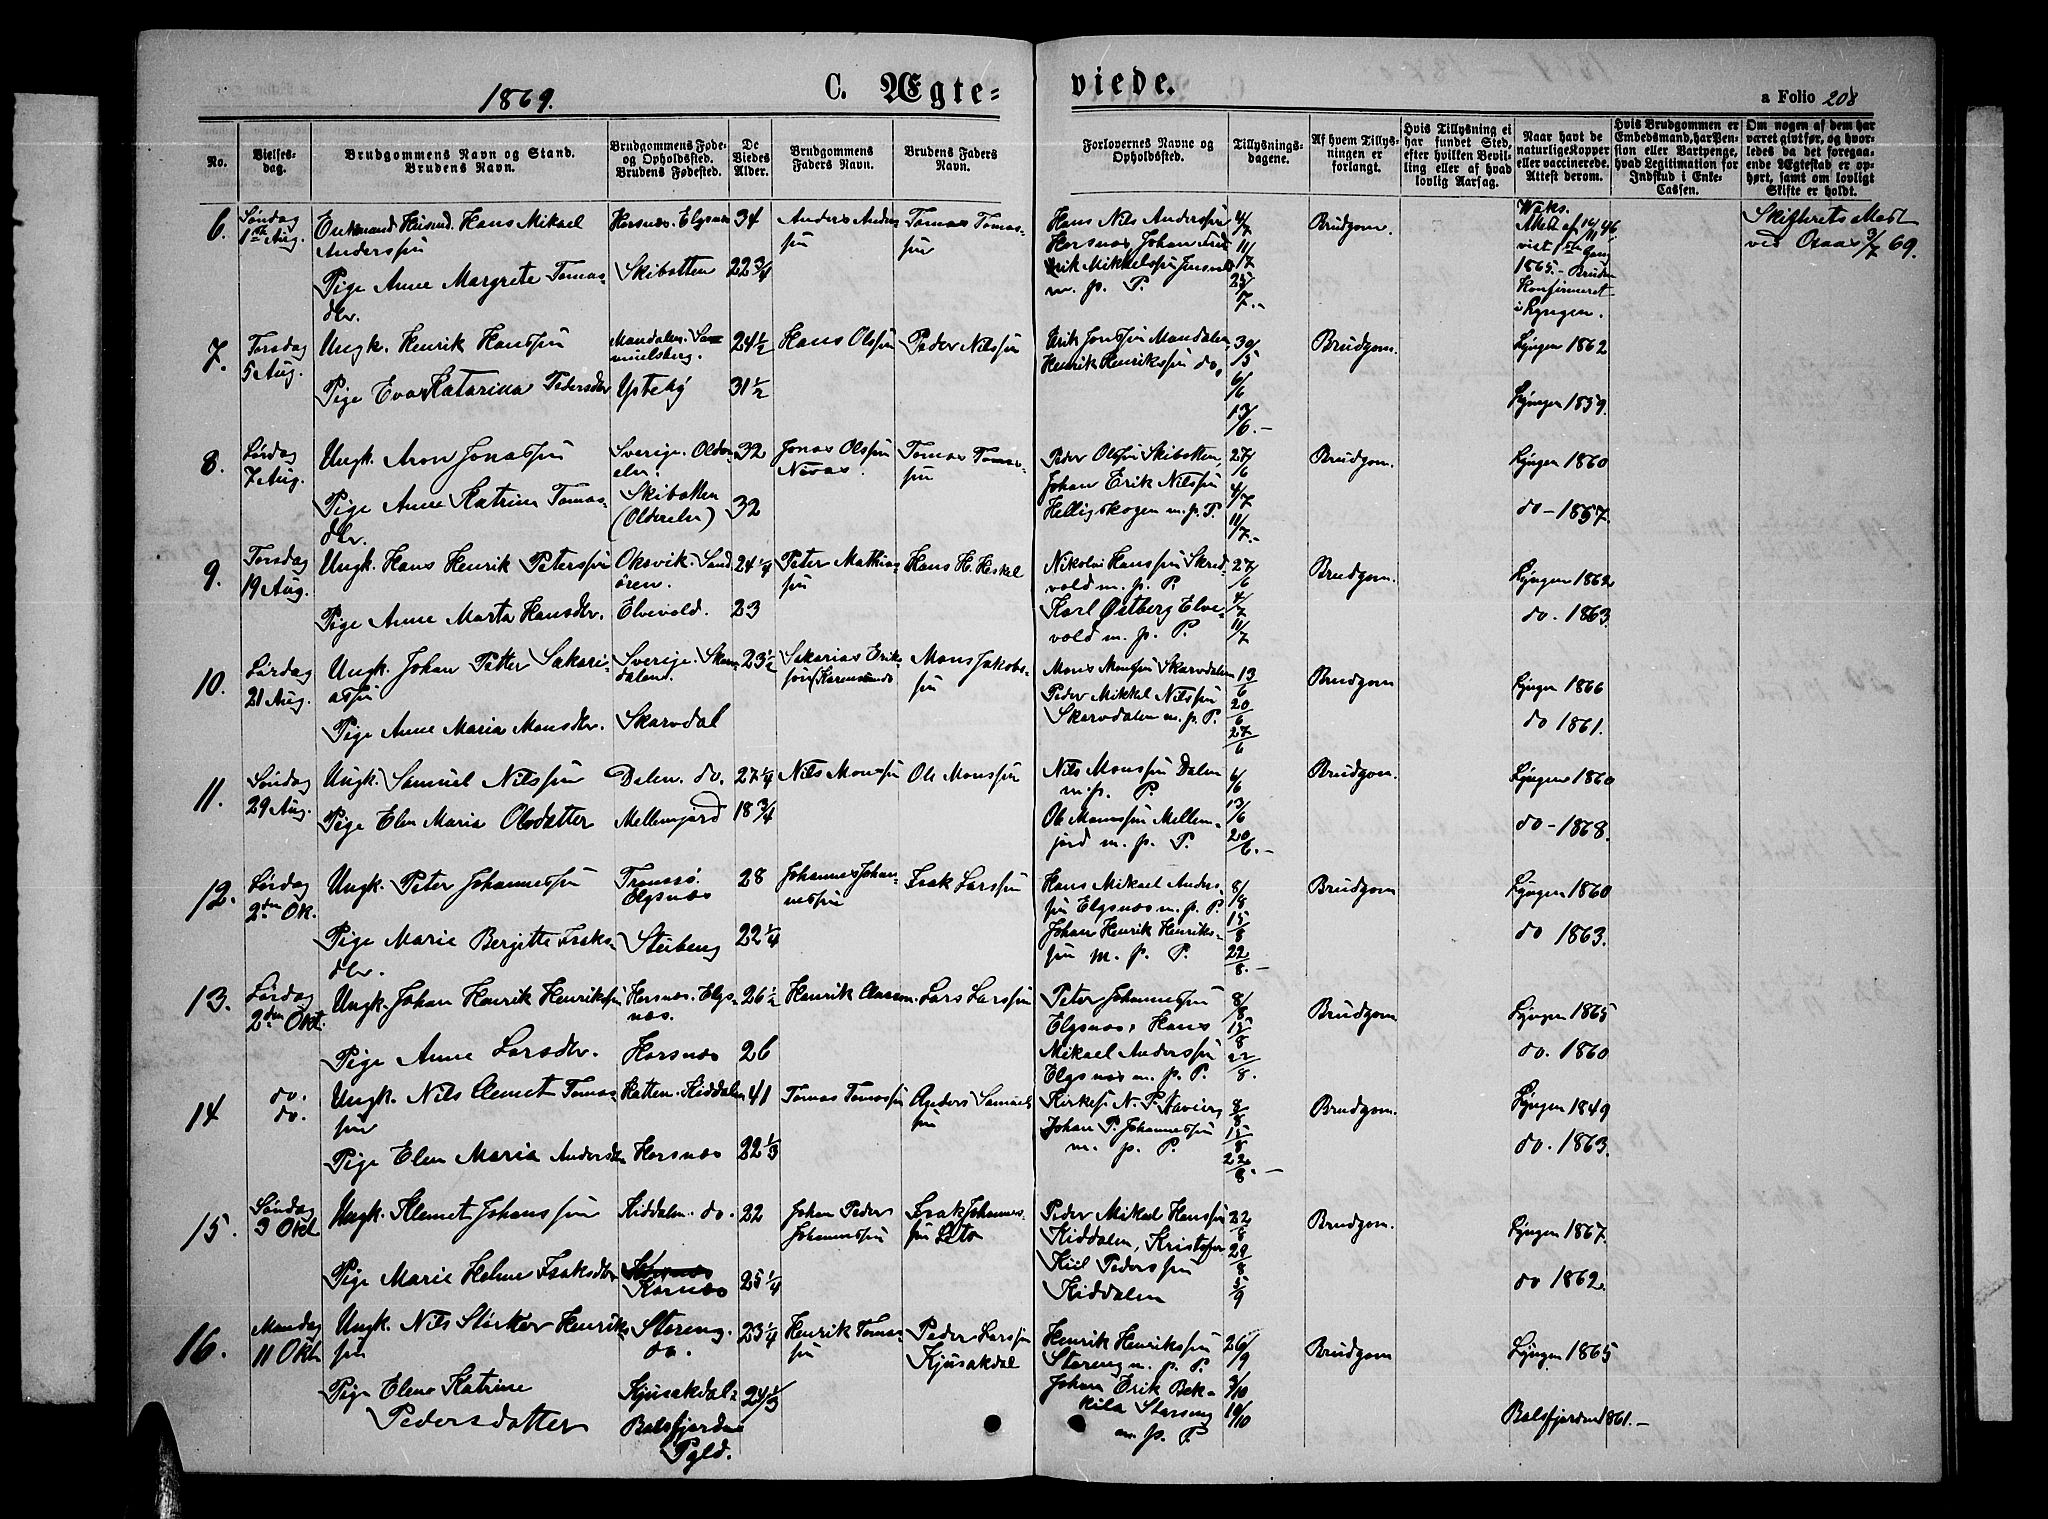 1869.
C. Ægteviede.
a Folio 208
No.
Vielses-
dag.
Brudgommens Navn og Stand.
Brudens Navn.
Brudgommens Føde-
og Opholdssted.
Brudens Fødested.
De
Viedes
Alder.
Brudgommens
Faders Navn.
Brudens Faders
Navn.
Forlovernes Navne og
Opholdssted.
Tillysnings-
dagene.
Af hvem Tillys-
ningen er
forlangt.
Hvis Tillysning ei
har fundet Sted,
efter hvilken Bevil-
ling eller af hvad
lovlig Aarsag.
Naar havt de
naturlige Kopper
eller vaccinerede.
Attest derom.
Hvis Brudgommen er
Embedsmand, har Pen-
sion eller Vartpenge,
hvad Legitimation for
Indskud i Enke-
Cassen.
Om nogen af dem har
været givt før, og hvor-
ledes da det foregaa-
ende Ægteskab er op-
hørt, samt om lovligt
Skifte er holdt.
6.
Søndag
1ste Aug.
Enkemand Husmd. Hans Mikael
Anderssøn
Pige Anne Margrete Tomas-
dtr.
Horsnæs. Elgsnæs
Skibotten
34
22 3/4
Anders Anders
søn
Tomas Tomas-
søn
Hans Nils Anderssøn
Horsnæs, Johan
Erik Mikkelssøn
m. p. P.
4/7
11/7
25/7.-
Brudgom.
Attest af 14/11 46
vist 1ste Gang
1865.- Bruden
konfirmeret
i Lyngen.
Skifterets Attest
ved Oraas 3/7 69.
7.
Torsdag
5 Aug.
Ungk. Henrik Hanssøn
Pige Eva Katarina Pedersdtr
Mandalen. Sa-
muelsberg.
Ysteby
24 1/2
31 1/2
Hans Olssøn
Peder Nilssøn
Erik Jonssøn Mandalen
Henrik Henrikssøn do.
30/5
6/6
13/6.-
Brudgom.
Lyngen 1862
Lyngen 1859.
8.
Lørdag
7 Aug.
Ungk. Aron Jonassøn
Pige Anne Katrine Tomas-
dtr.
Sverige. Older-
elv.
Skibotten
(Olderelv)
32
32
Jonas Olssøn
Nivas
Tomas Tomas-
søn
Peder Olssøn Skibotten,
Johan Erik Nilssøn
Helligskogen m. p. P.
27/6
4/7
11/7.-
Brudgom.
Lyngen 1860
do - 1857.
9.
Torsdag
19 Aug.
Ungk. Hans Henrik Peterssøn
Pige Anne Marta Hansdtr.
Oksvik. Sand-
ören.
Elvevold.
24 1/4
23
Peter Mathias-
søn
Hans H. Heskel
Nikolai Hanssøn Skred-
vold m. p. P.
Karl Østberg Elve-
vold m. p. P.
27/6
4/7
11/7
Brudgom.
Lyngen 1862
do. 1863.
10.
Lørdag
21 Aug.
Ungk. Johan Petter Sakari-
assøn
Pige Anne Maria Monsdtr.
Sverige. Skarv-
dalen.
Skarvdal
23 1/2
Sakarias Eriks-
søn (Karesuando
Mons Jakobs-
søn
Mons Monssøn Skarvdalen
Peder Mikkel Nilssøn
Skarvdalen m. p. P.
13/6
20/6
27/6
Brudgom
Lyngen 1866
do 1861.
11.
Søndag
29 Aug.
Ungk. Samuel Nilssøn
Pige Elen Maria Olsdatter
Dalen. do.
Mellemjord
27 1/4
18 3/4
Nils Monssøn
Ole Monssøn
Nils Monssøn Dalen
m. p. P.
Ole Monssøn Mellem-
jord m. p. P.
6/6
13/6
20/6.-
Brudgom.
Lyngen 1860
do - 1868.
12.
Lørdag
2den Ok.
Ungk. Peter Johannessøn
Pige Marie Bergitte Isaks-
dtr.
Tromsø.
Elgsnæs
Steibeng
28
22 1/4
Johannes Johan-
nessøn
Isak Larssøn
Hans Mikael Anders-
søn Elgsnæs m. p. P.
Johan Henrik Henriks-
søn m. p. P.
8/8
15/8
22/8.-
Brudgom
Lyngen 1860
do 1863.
13.
Lørdag
2den Okt.
Ungk. Johan Henrik Henrikssøn
Pige Anne Larsdtr.
Horsnæs. Elgs-
næs.
Horsnæs
26 1/2
26
Henrik
Lars Larssøn
Peter Johannessøn
Elgsnæs, Hans
Mikael Anderssøn
Elgsnæs m. p. P.
8/8
15/8
22/8.
Brudgom
Lyngen 1865
do. 1860
14
do.
do.
Ungk. Nils Clemet Tomas-
søn
Pige Elen Maria Andersdtr
Hatten. Kiddalen
Horsnæs
41
22 1/3
Tomas Tomassøn
Anders Samuels
søn
Kirkes. N. P. Navierg
Johan P. Johannessøn
m. p. P.
8/8
15/8
22/8.-
Brudgom.
Lyngen 1849
do. 1863.
15.
Søndag
3 Okt
Ungk. Klemet Johanssøn
Pige Marie Helene Isaksdtr
Kiddalen. do.
Kornæs
22
25 1/4
Johan Peder
Johannessøn
Isak Johannes-
søn Leto
Peder Mikael Hanssøn
Kiddalen, Kristoffer
Kiil Pederssøn
Kiddalen
22/8
29/8
5/9
Brudgom.
Lyngen 1867.
do 1862.
16.
Mandag
11 Okt
Ungk. Nils Størker Henriks
søn
Pige Elen Katrine
Pedersdatter
Storeng.
do.
Kjusakdal
Balsfjorden
Pgld.
23 1/4
24 1/3
Henrik Tomas-
søn
Peder Larssøn
Kjusakdal
Henrik Henrikssøn
Storeng m. p. P.
Johan Erik Bek-
kila Storeng
m. p. P.
26/9
3/10
10/10
Brudgom
Lyngen 1865
Balsfjorden 1861.-